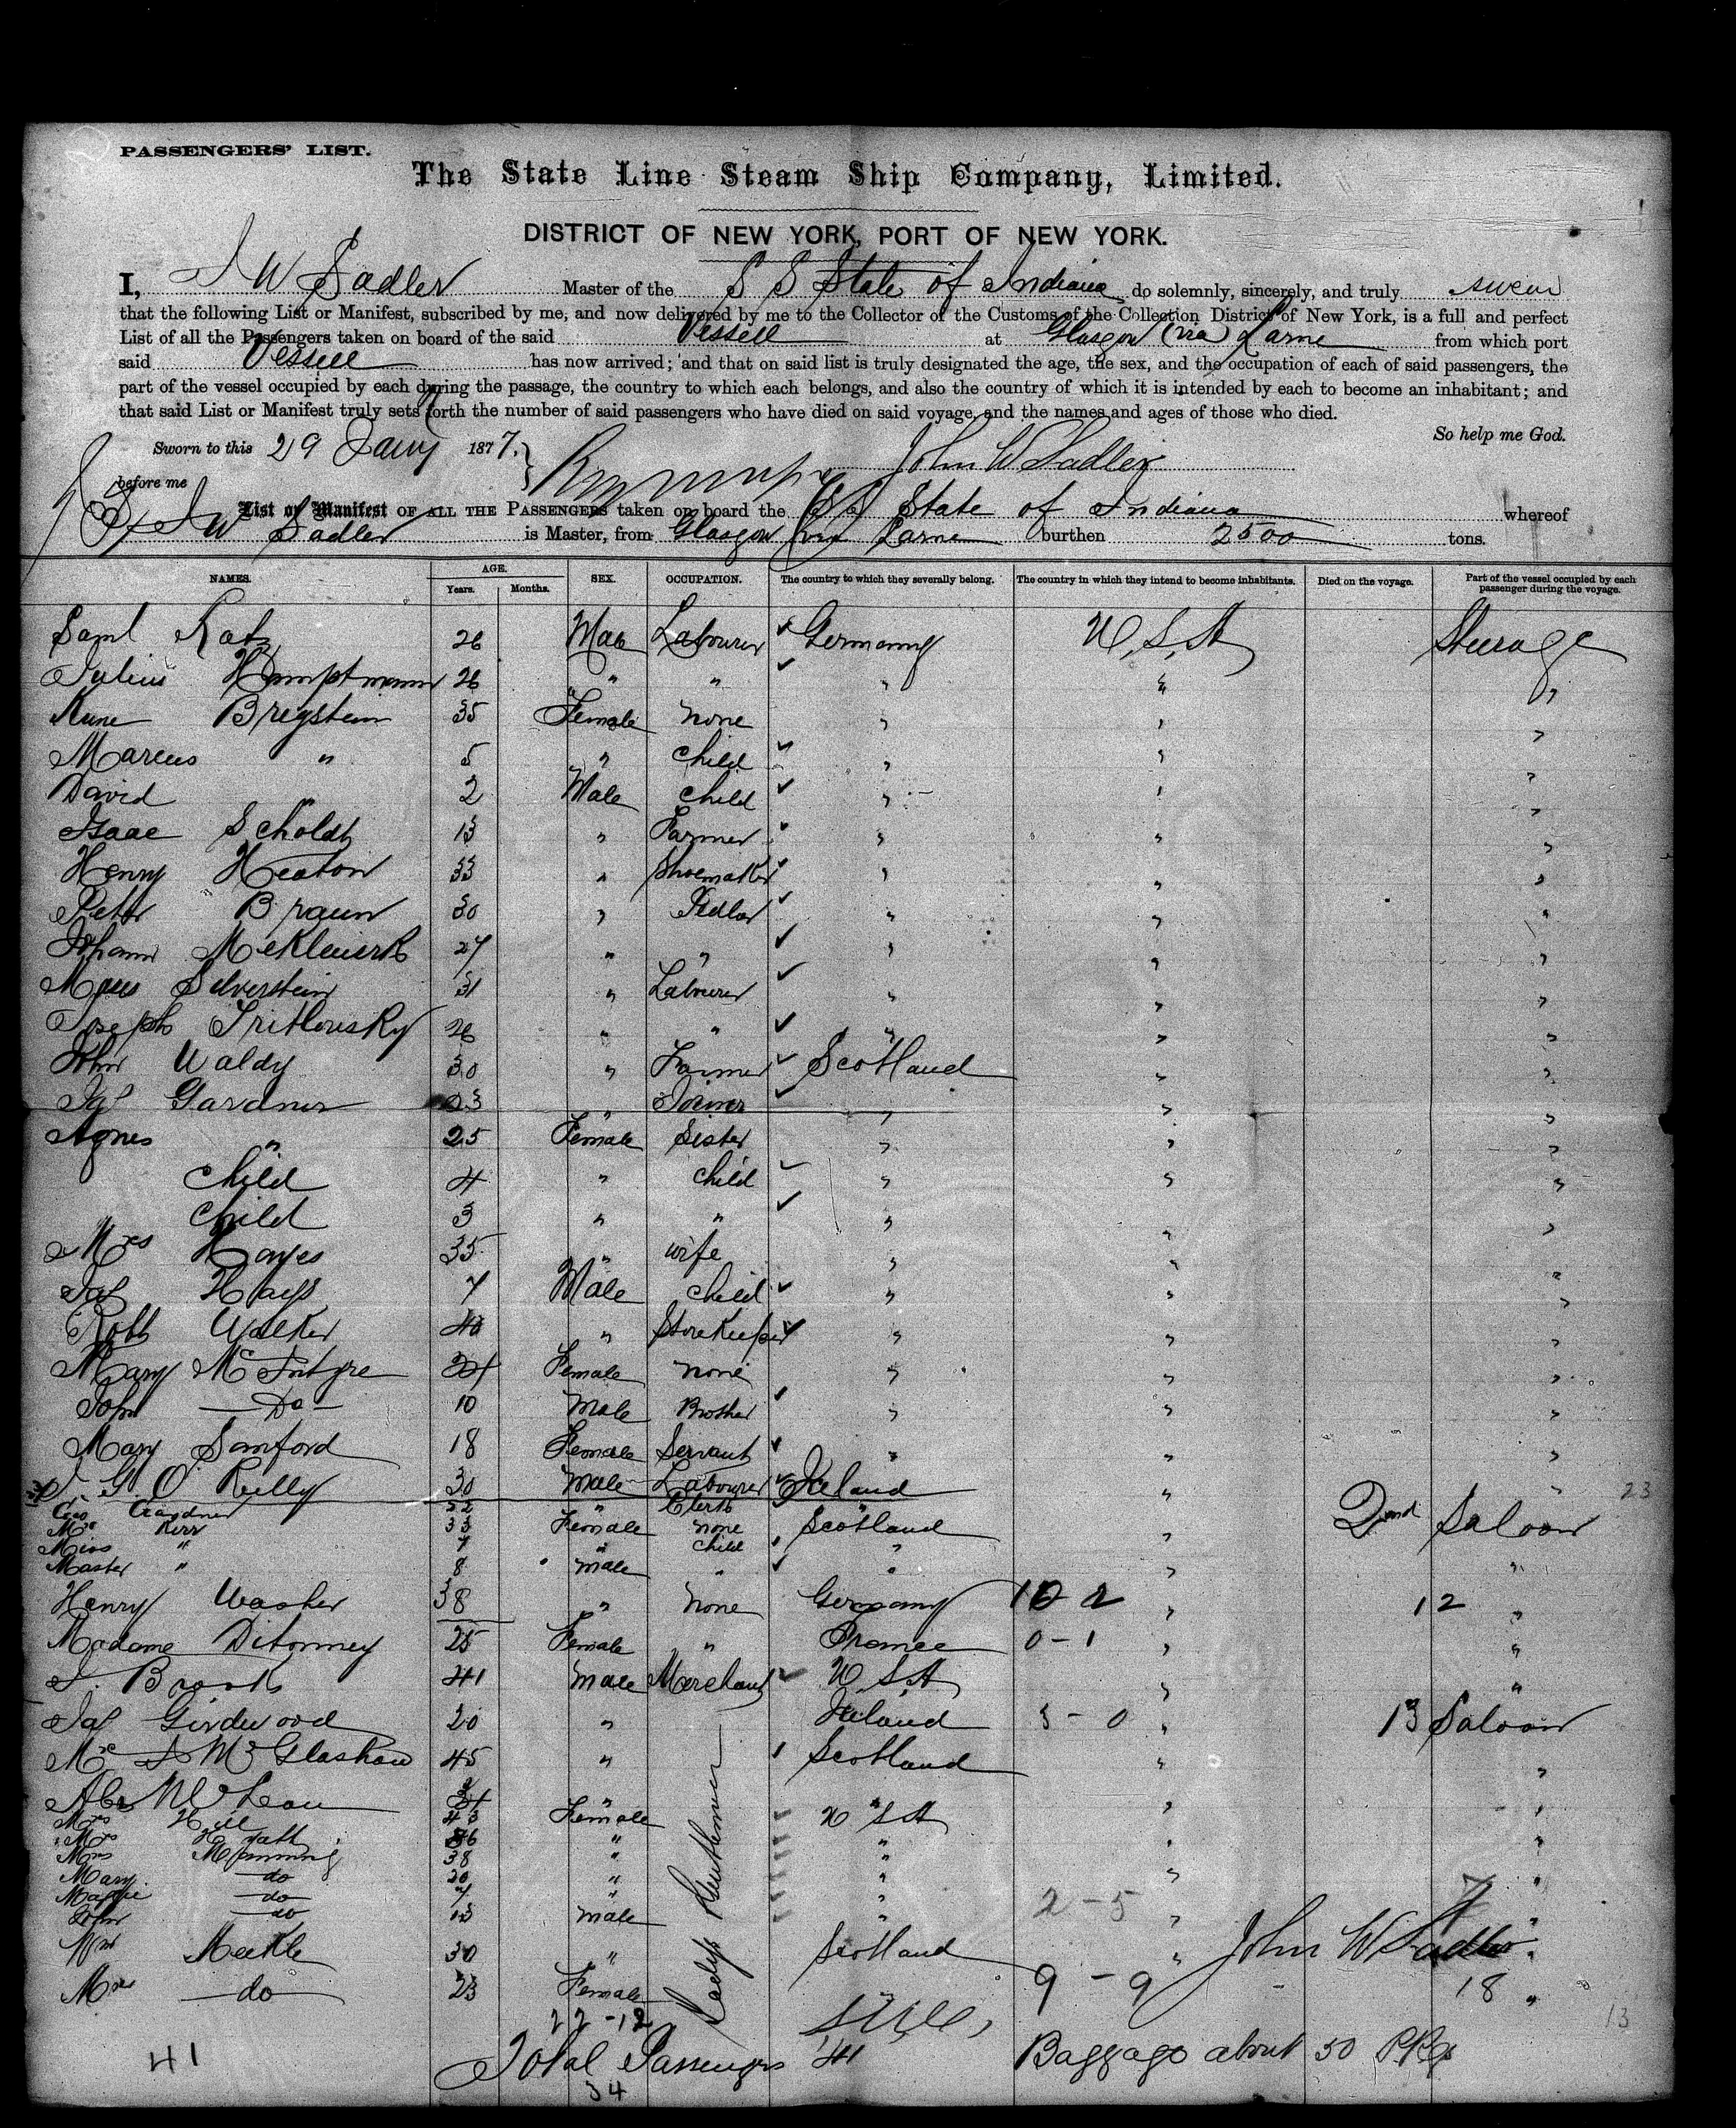 PASSENGERS' LIST.
The State Line Steam Ship Company, Limited.
DISTRICT OF NEW YORK, PORT OF NEW YORK.
I, J W Sadler Master of the S S State of Indiana do solemnly, sincerely, and truly swear
that the following List or Manifest, subscribed by me, and now delivered by me to the Collector of the Customs of the Collection District of New York, is a full and perfect
List of all the Passengers taken on board of the said Vessell at Glasgow (via) Larne from which port
said Vessell has now arrived; and that on said list is truly designated the age, the sex, and the occupation of each of said passengers, the
part of the vessel occupied by each during the passage, the country to which each belongs, and also the country of which it is intended by each to become an inhabitant; and
that said List or Manifest truly sets forth the number of said passengers who have died on said voyage, and the names and ages of those who died.
So help me God.
Sworn to this 29 Jany 1877. John W Sadler
before me
List or Manifest OF ALL THE PASSENGERS taken on board the SS State of Indiana whereof
J W Sadler is Master, from Glasgow via Larne burthen 2500 tons.
NAMES. AGE. Years. Months. SEX. OCCUPATION. The country to which they severally belong. The country in which they intend to become inhabitants. Died on the voyage. Part of the vessel occupied by each passenger during the voyage.
Saml Katz 26 Male Labourer Germany U.S.A Steerage
Julius 26 " " " " "
Breystein 35 Female none " " "
Marcus " 5 " child " " "
David " 2 Male child " " "
Isaac 13 " Farmer " " "
Henry Heaton 33 " Shoemaker " " "
Peter Braun 30 " Pedlar " " "
Johann 27 " " " " "
Silverstein 31 " Labourer " " "
Joseph 26 " " " " "
John Waldy 30 " Farmer Scotland " "
Jas Gardner 23 " Joiner " " "
Agnes " 25 Female Sister " " "
Child 4 " child " " "
Child 3 " " " " "
Mrs Hayes 35 " wife " " "
Jas Hays 7 Male child " " "
Robt Walker 40 " Storekeeper " " "
Mary McIntyre 34 Female none " " "
John —Do— 10 Male Brother " " "
Mary Samford 18 Female Servant " " "
J. G. O'Reilly 30 male Labourer Ireland " " 23
Gardner 22 " Clerk "
Mrs Kerr 33 Female none Scotland " 2nd Saloon
Miss " 7 " child "
Master " 8 male " " " "
Henry Washer 38 " None Germany 10 2 " 12 "
Madame Ditonney 25 Female " France 0-1 " "
Brook 41 male Merchant U.S.A " "
Jas Girdwood 20 " Ireland 3-0 " 13 Saloon
Mr McGlashan 45 " Scotland " "
McLean 34 " " "
Mrs Hill 43 Female U S A
Mrs 46 " " " "
Mrs Manning 38 " "
Mary do 20 " " " "
Maggie do 7 " "
John do 13 male " 2-5 " "
Mr Meekle 30 " Scotland " John W Sadler
Mrs do 23 Female 9-9 18 "
22-12 13
41 Total Passengers 41 Baggage about 50 Pkgs
34